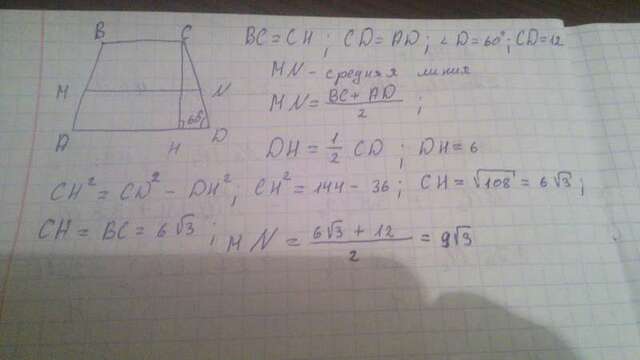 B C
M N
A H D
60°
BC = CH ; CD = AD ; ∠D = 60° ; CD = 12
MN - средняя линия
MN = (BC + AD)/2 ;
DH = 1/2 CD ; DH = 6
CH² = CD² - DH² ; CH² = 144 - 36 ; CH = √108 = 6√3 ;
CH = BC = 6√3 ; MN = (6√3 + 12)/2 = 9√3